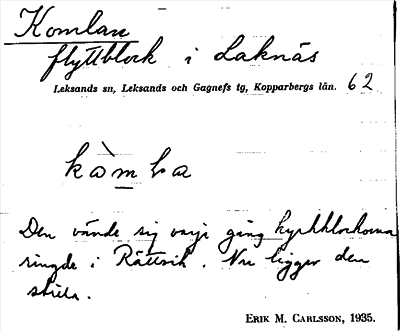 Komlan
flyttblock i Laknäs
Leksands sn, Leksands och Gagnefs tg, Kopparbergs län. 62
Den vände sig varje gång kyrkklockorna
ringde i Rättvik. Nu ligger den
stilla.
ERIK M. CARLSSON, 1935.